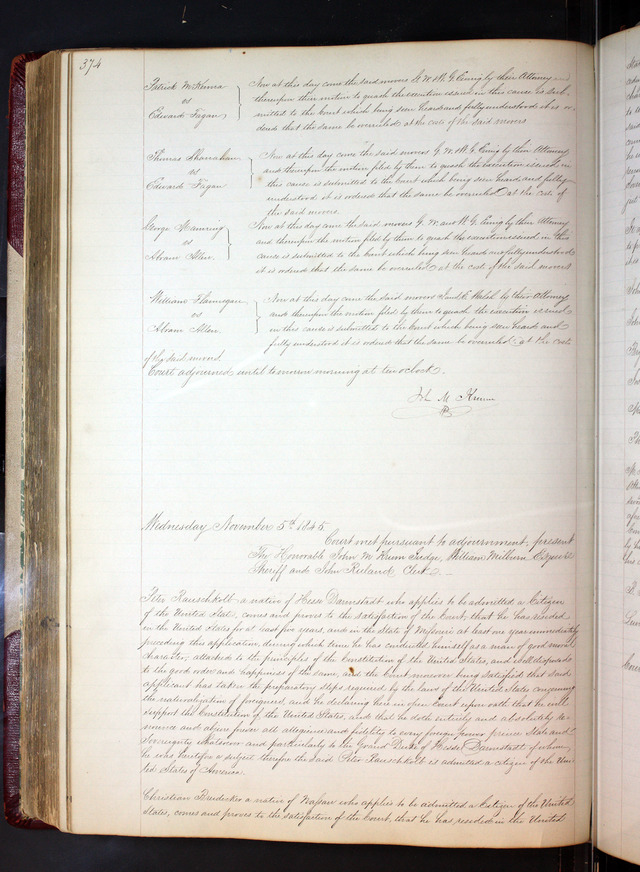 374
Patrick McKenna
vs
Edward Fagan
Now at this day come the said movers G. W. & W. G. Ewing by their Attorney and
thereupon their motion to quash the execution issued in this cause is sub-
mitted to the Court which being seen heard and fully understood it is or-
dered that the same be overruled at the costs of the said movers
Thomas Shanahan
vs
Edward Fagan
Now at this day come the said movers G. W. & W. G. Ewing by their Attorney
and thereupon the motion filed by them to quash the execution issued in
this cause is submitted to the Court which being seen heard and fully
understood it is ordered that the same be overruled at the costs of
the said movers
George Manning
vs
Abram Allen
Now at this day come the said movers G. W. and W. G. Ewing by their Attorney
and thereupon the motion filed by them to quash the execution issued in this
cause is submitted to the Court which being seen heard and fully understood
it is ordered that the same be overruled at the cost of the said movers
William Flannegan
vs
Abram Allen
Now at this day come the said movers E. Walsh by their Attorney
and thereupon the motion filed by them to quash the execution issued
in this cause is submitted to the Court which being seen heard and
fully understood it is ordered that the same be overruled at the costs
of the said movers
Court adjourned until tomorrow morning at ten oclock.
John M Krum
Wednesday November 5th 1845.
Court met pursuant to adjournment, present
The Honorable John M Krum Judge, William Milburn Esquire
Sheriff and John Ruland Clerk
Peter Rauschkolb a native of Hesse Darmstadt who applies to be admitted a Citizen
of the United States, comes and proves to the satisfaction of the Court, that he has resided
in the United States for at least five years, and in the State of Missouri at least one year immediately
preceding this application, during which time he has conducted himself as a man of good moral
character, attached to the principles of the Constitution of the United States, and well disposed
to the good order and happiness of the same, and the Court moreover being satisfied that said
applicant has taken the preparatory steps required by the laws of the United States concerning
the naturalization of foreigners, and he declaring here in open Court upon oath that he will
support the Constitution of the United States, and that he doth entirely and absolutely re-
nounce and abjure forever all allegiance and fidelity to every foreign power prince State and
Sovereignty whatsoever and particularly to the Grand Duke of Hesse Darmstadt of whom
he was heretofore a subject therefore the said Peter Rauschkolb is admitted a citizen of the Uni-
ted States of America.
Christian a native of Nassau who applies to be admitted a Citizen of the United
States, comes and proves to the satisfaction of the Court, that he has resided in the United